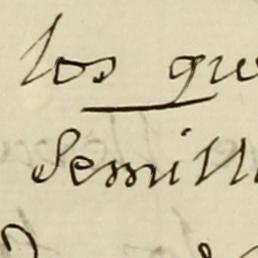 los que
Semill